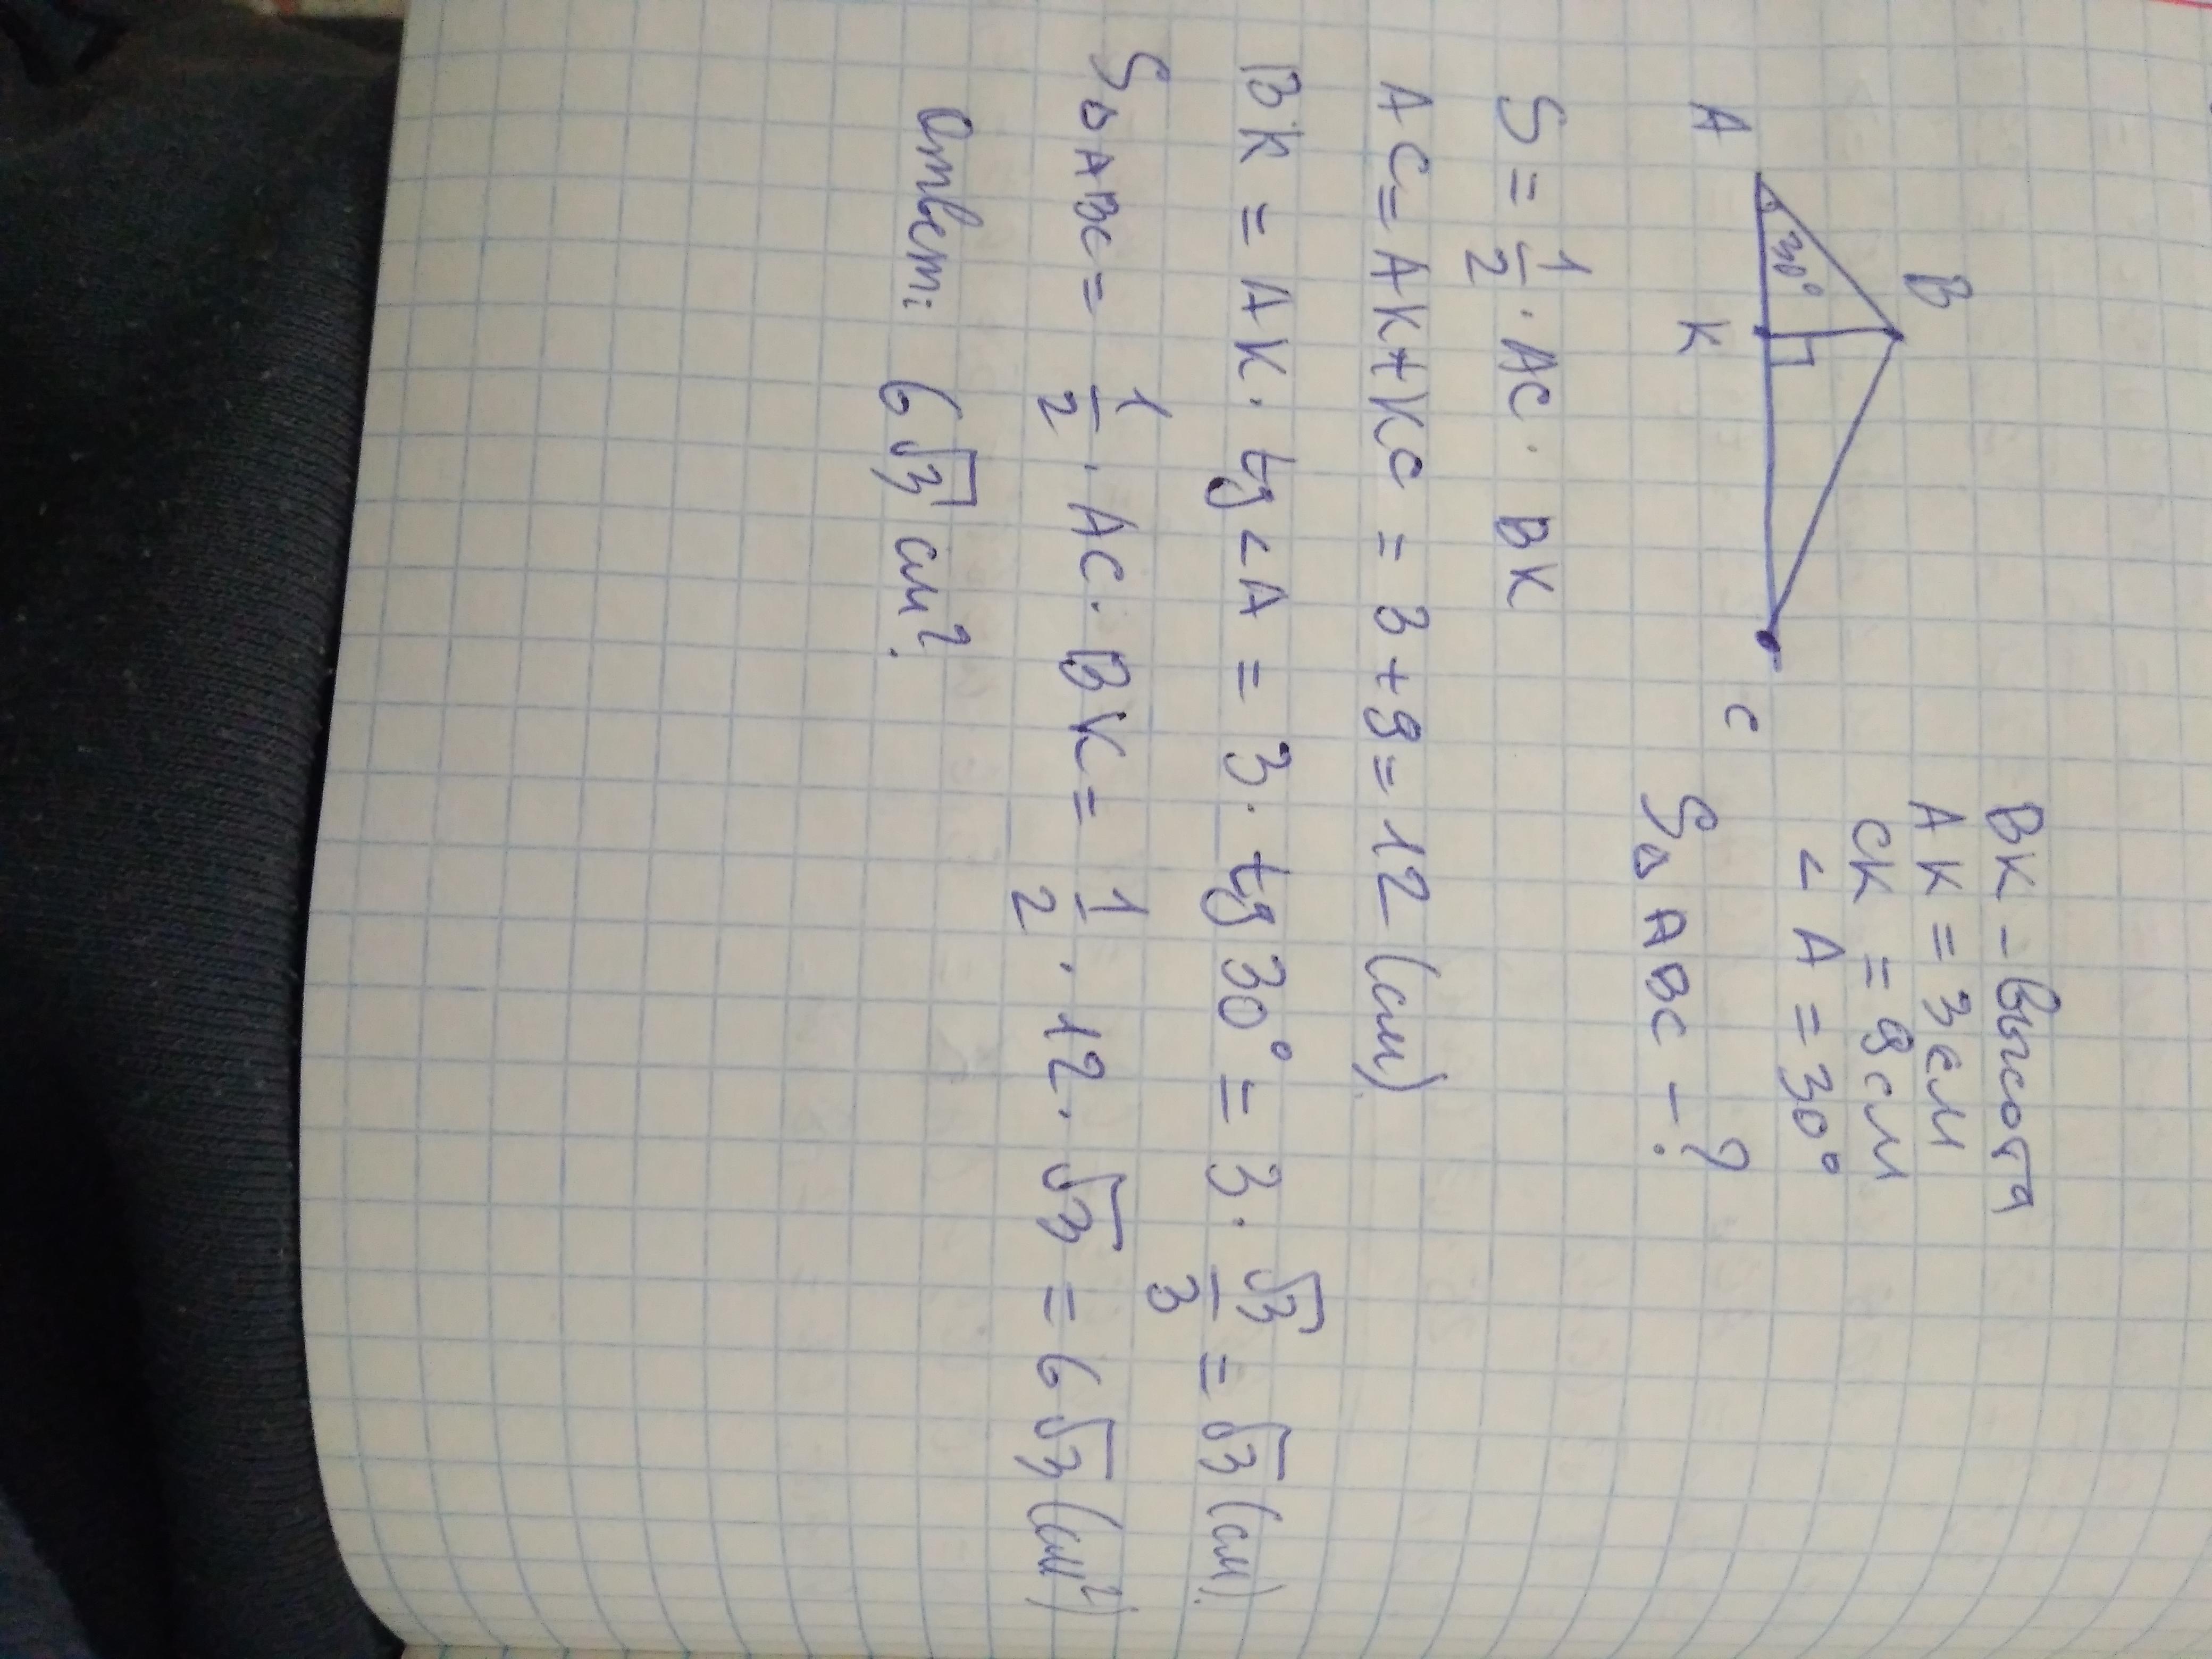 B
A
30°
K
C
BK - высота
AK = 3см
CK = 9см
∠A = 30°
S△ABC - ?
S = 1/2 · AC · BK
AC = AK + KC = 3 + 9 = 12 (см)
BK = AK · tg∠A = 3 · tg 30° = 3 · √3/3 = √3 (см)
S△ABC = 1/2 · AC · BK = 1/2 · 12 · √3 = 6√3 (см²)
Ответ: 6√3 см².